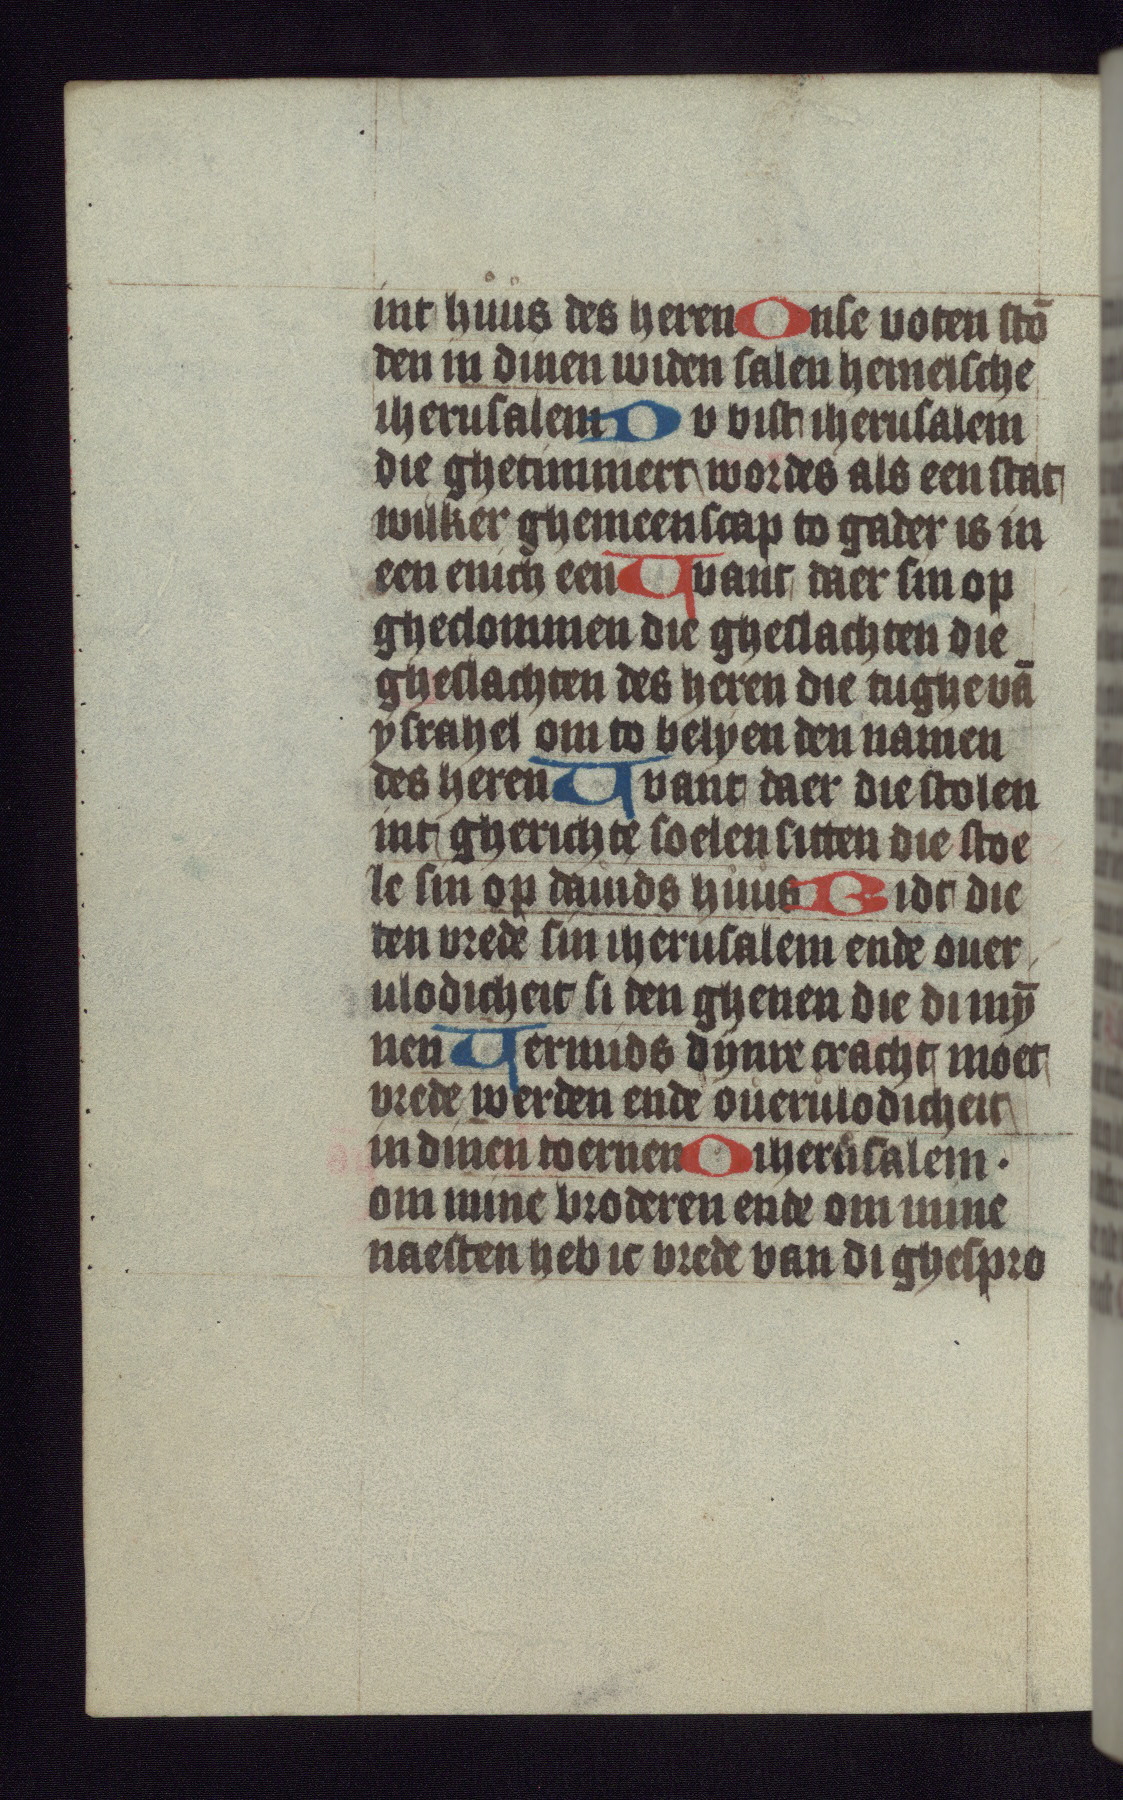 int huus des heren Onse voten stō
den in dinen widen salen hemelsche
iherusalem Du bist iherusalem
die ghetimmert wordes als een stat
wilker ghemeenscap to gader is in
een enich een Want daer sin op
gheclommen die gheslachten die
gheslachten des heren die tughe vā
ysrahel om to belyen den namen
des heren Want daer die stolen
int gherichte soelen sitten die stoe
le sin op dauids huus Bidt die
ten vrede sin iherusalem ende ouer
ulodicheit si den ghenen die di mȳ
nen Vermids dynre cracht moet
vrede werden ende ouerulodicheit
in dinen toernen O iherusalem ·
om mine broderen ende om mine
naesten heb ic vrede van di ghespro